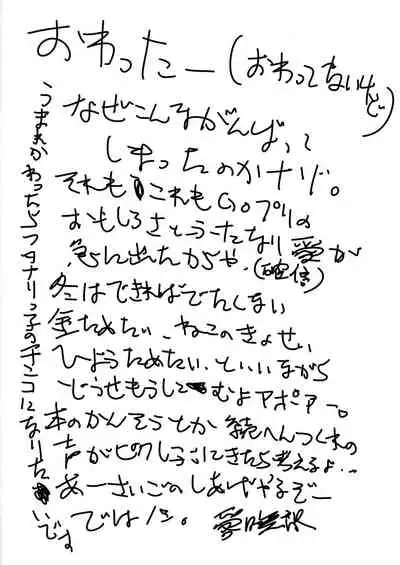 おわったー(おわってないけど)
なぜこんながんばって
しまったのかナゾ。
それもこれもGOプリの
おもしろさとうたなり愛が
急に出たからや、(確信)
冬はできればでたくない
金ためたい、ねこのきょせい
ひようためたい、といいながら
どうせもうしこむよアポォー。
本のかんそうとか続へんつくれの
声がピクしうにきたら考えるよ…
あーさいごのしあげやるぞー
ではノシ。
うまれかわったらフタナリっ子のチンコになりたいです